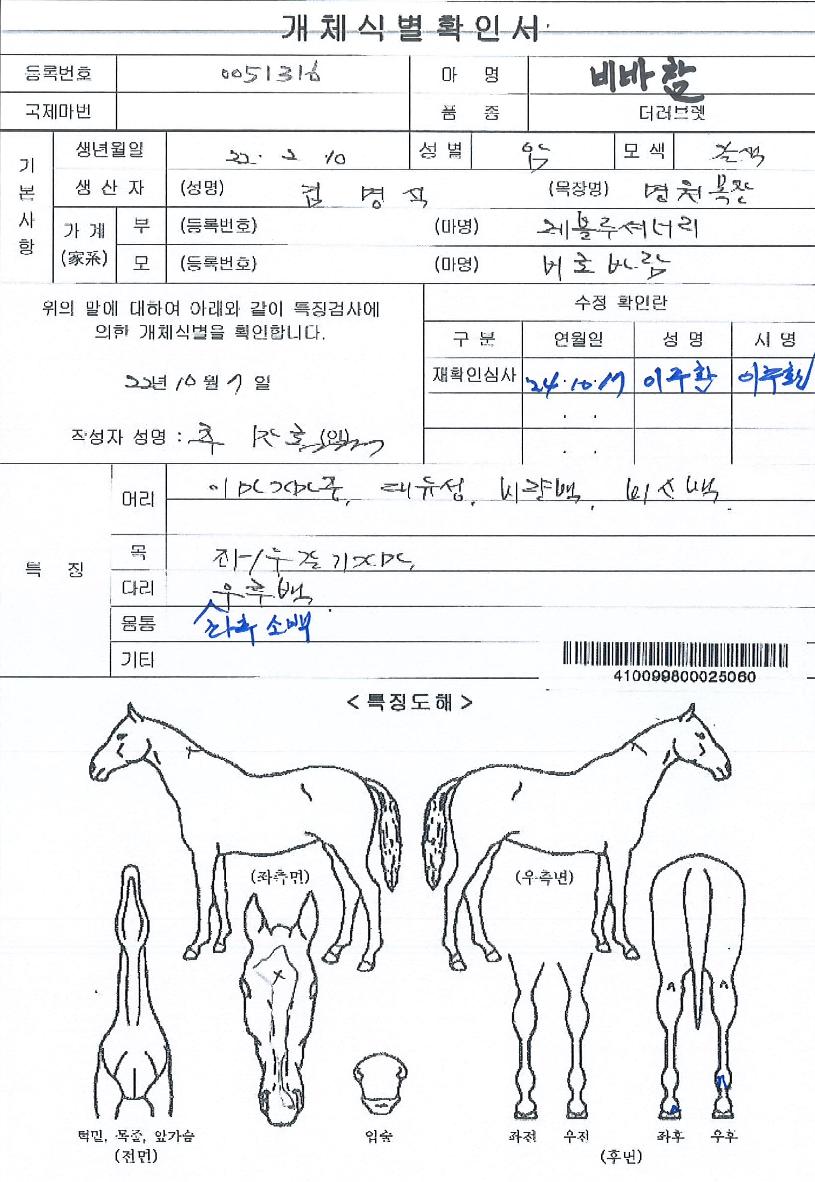 개체식별확인서
등록번호 0051316 마 명 비바참
국제마번 품 종 더러브렛
기본사항
생년월일 22. 2. 10 성별 암 모색 갈색
생산자 (성명) 김명식 (목장명) 명천목장
가계 (家系) 부 (등록번호) (마명) 레볼루셔너리
모 (등록번호) (마명) 바람
위의 말에 대하여 아래와 같이 특징검사에
의한 개체식별을 확인합니다.
22년 10월 7일
작성자 성명 : (인)
수정 확인란
구분 연월일 성명 서명
재확인심사 24.10.17 이주환 이주환
. .
. .
특 징
머리 유성, 비량백, 비순백
목
다리 우후백
몸통 좌후 소백
기타
410099800025060
< 특징도해 >
(좌측면) (우측면)
턱밑, 목줄, 앞가슴
(전면)
입술
좌전 우전 좌후 우후
(후면)